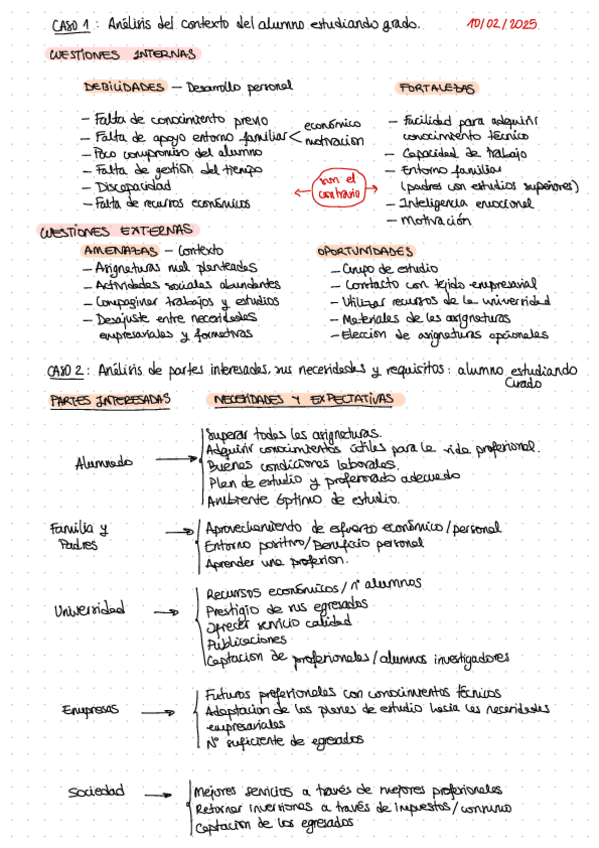 CASO 1 : Análisis del contexto del alumno estudiando grado. 10/02/2025
CUESTIONES INTERNAS
DEBILIDADES — Desarrollo personal
— Falta de conocimiento previo
— Falta de apoyo entorno familiar < económico
motivación
— Poco compromiso del alumno
— Falta de gestión del tiempo
— Discapacidad
— Falta de recursos económicos
son el
contrario
FORTALEZAS
— Facilidad para adquirir
conocimiento técnico
— Capacidad de trabajo
— Entorno familiar
(padres con estudios superiores)
— Inteligencia emocional
— Motivación
CUESTIONES EXTERNAS
AMENAZAS — Contexto
— Asignaturas mal planteadas
— Actividades sociales abundantes
— Compaginar trabajos y estudios
— Desajuste entre necesidades
empresariales y formativas
OPORTUNIDADES
— Grupo de estudio
— Contacto con tejido empresarial
— Utilizar recursos de la universidad
— Materiales de las asignaturas
— Elección de asignaturas opcionales
CASO 2 : Análisis de partes interesadas, sus necesidades y requisitos : alumno estudiando
Grado
PARTES INTERESADAS
NECESIDADES Y EXPECTATIVAS
Alumnado →
Superar todas las asignaturas.
Adquirir conocimientos útiles para la vida profesional.
Buenas condiciones laborales.
Plan de estudio y profesorado adecuado
Ambiente óptimo de estudio.
Familia y
Padres →
Aprovechamiento de esfuerzo económico/personal
Entorno positivo/Beneficio personal
Aprender una profesión.
Universidad →
Recursos económicos/nº alumnos
Prestigio de sus egresados
Ofrecer servicio calidad
Publicaciones
Captación de profesionales/alumnos investigadores
Empresas →
Futuros profesionales con conocimientos técnicos
Adaptación de los planes de estudio hacia las necesidades
empresariales
Nº suficiente de egresados
Sociedad →
Mejores servicios a través de mejores profesionales
Retornar inversiones a través de impuestos/consumo
Captación de los egresados